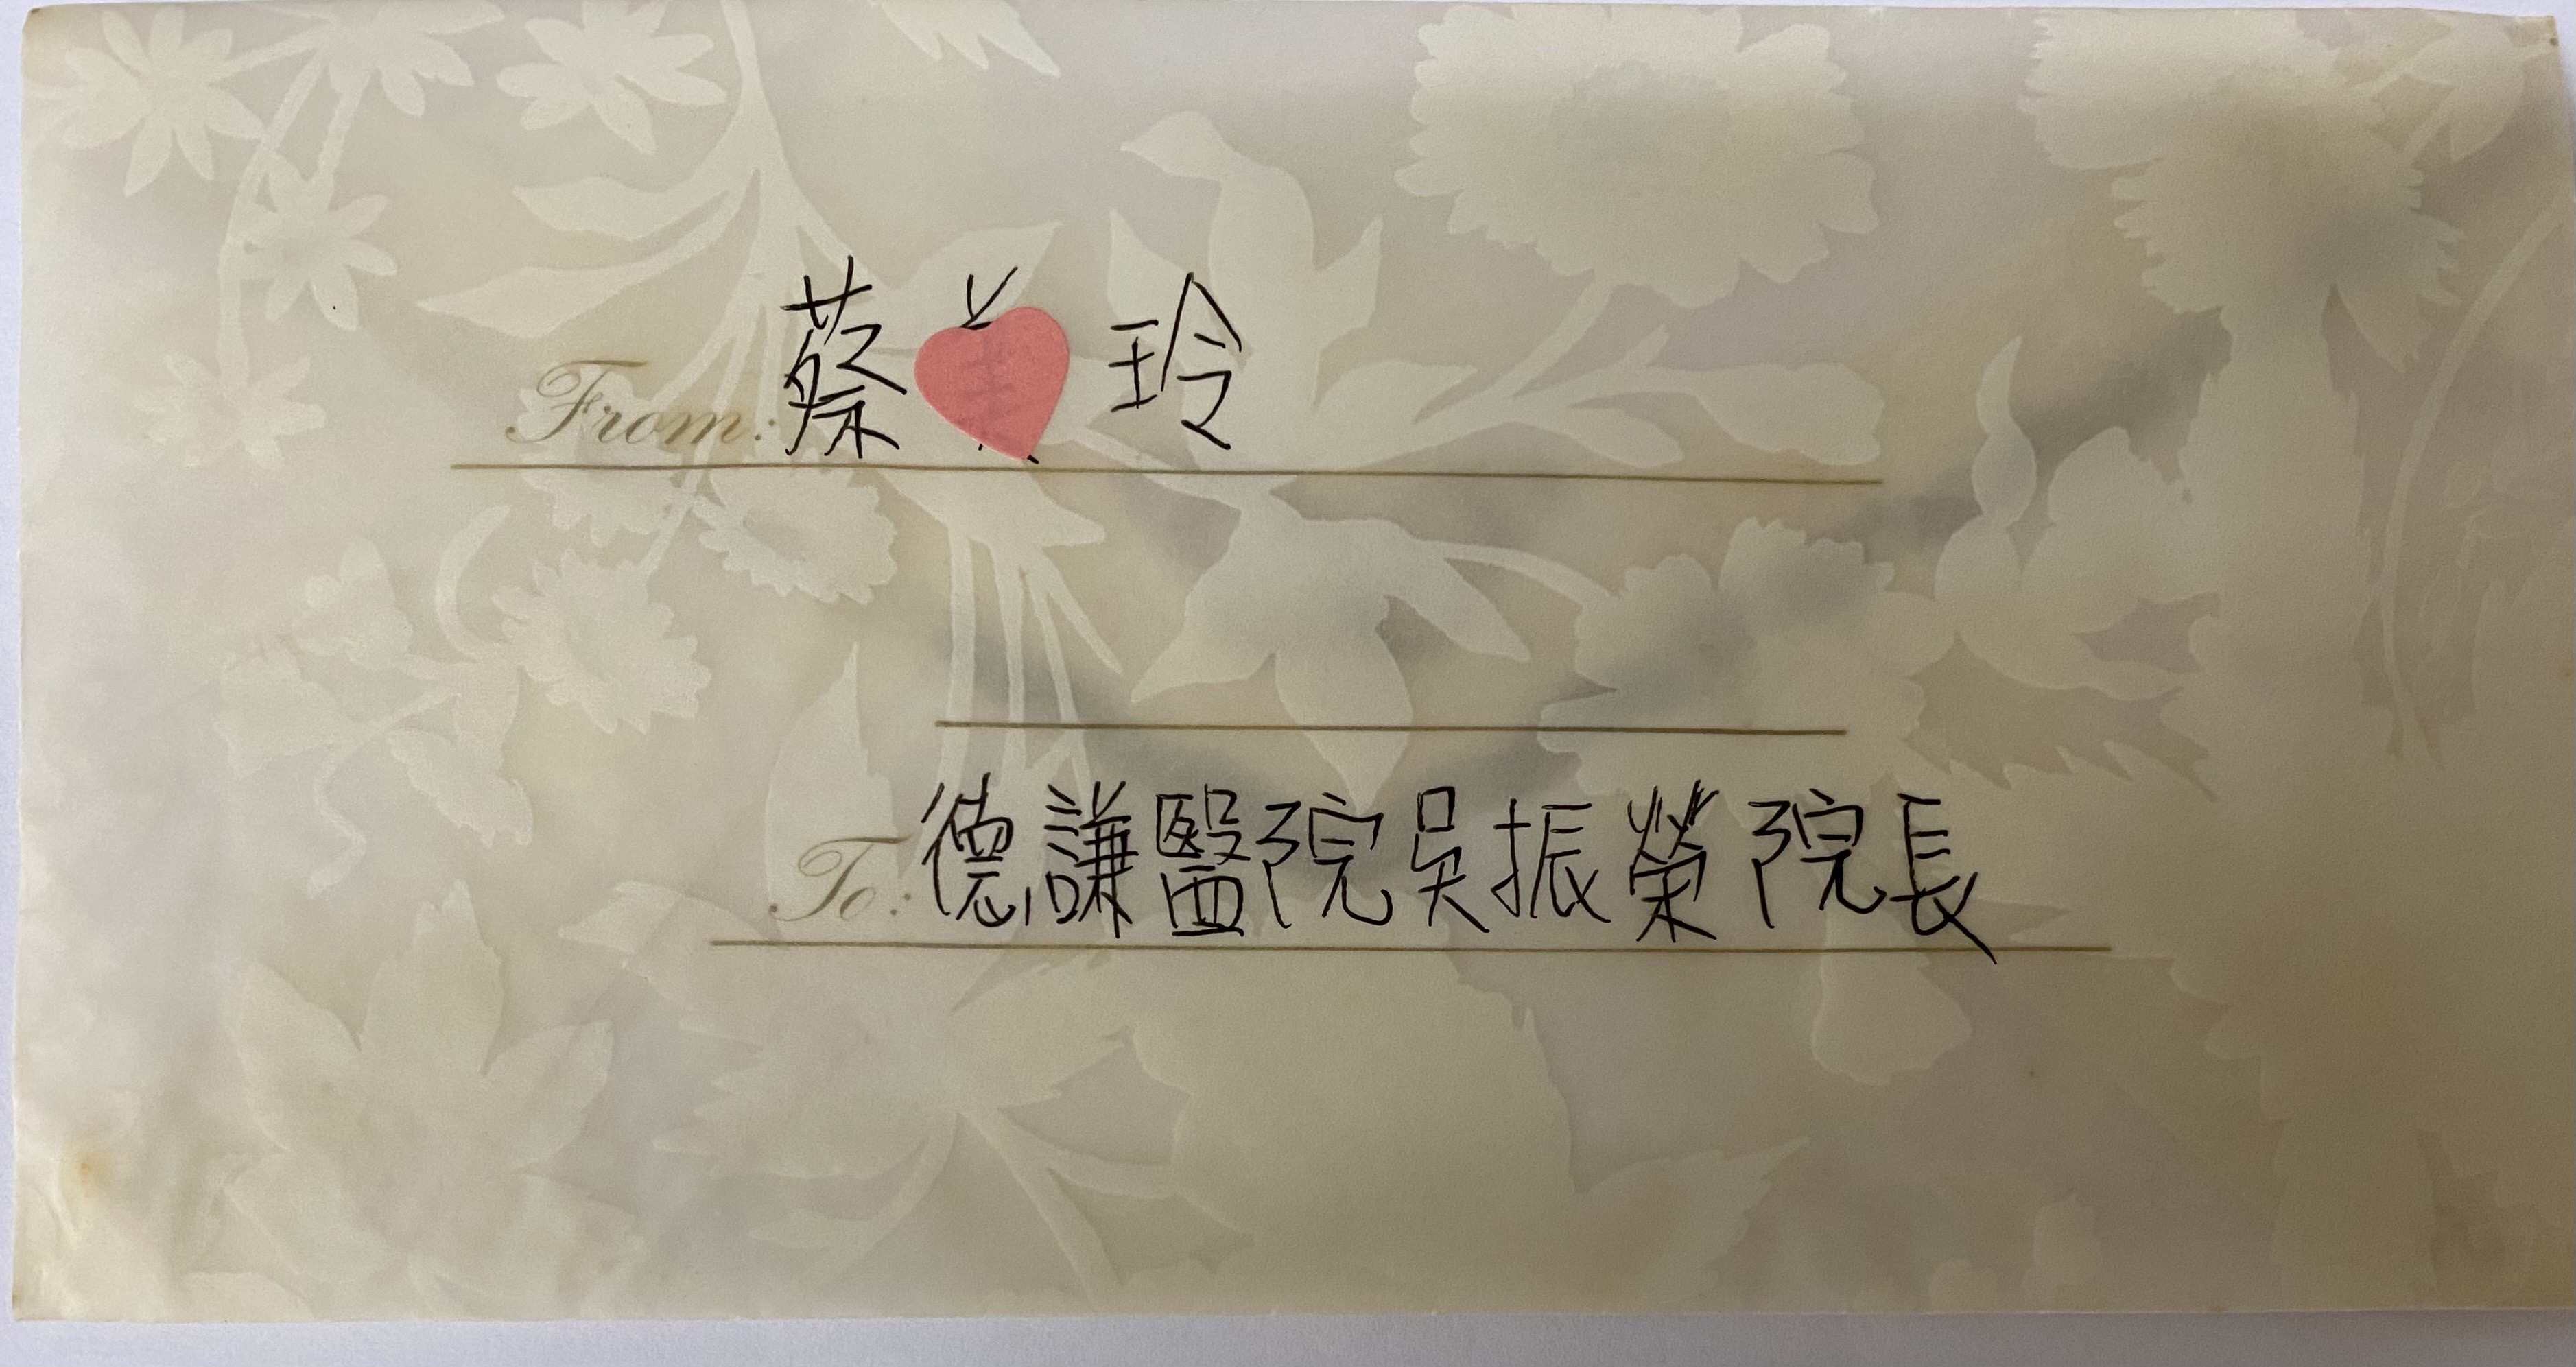 From: 蔡 玲
To: 德謙醫院吳振榮院長